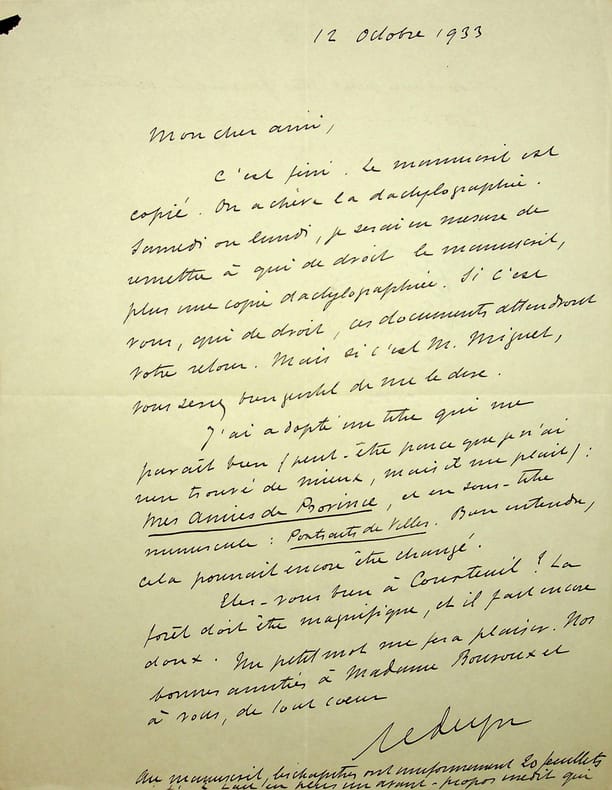 12 Octobre 1933
Mon cher ami,
C'est fini. Le manuscrit est
copié. On achève la dactylographie.
Samedi ou lundi, je serai en mesure de
remettre à qui de droit le manuscrit,
plus une copie dactylographiée. Si c'est
vous, qui de droit, ces documents attendront
votre retour. Mais si c'est M. Miguet,
vous serez bien gentil de me le dire.
J'ai adopté un titre qui me
paraît bien (peut-être parce que je n'ai
rien trouvé de mieux, mais il me plaît) :
Mes Amies de Province, et en sous-titre
minuscule : Portraits de Villes. Bien entendu,
cela pourrait encore être changé.
Etes-vous bien à Courteuil ? La
forêt doit être magnifique, et il fait encore
doux. Un petit mot me fera plaisir. Nos
bonnes amitiés à Madame Bouroux et
à vous, de tout coeur
Au manuscrit, les chapitres ont uniformément 20 feuillets
en plus un avant-propos inédit qui